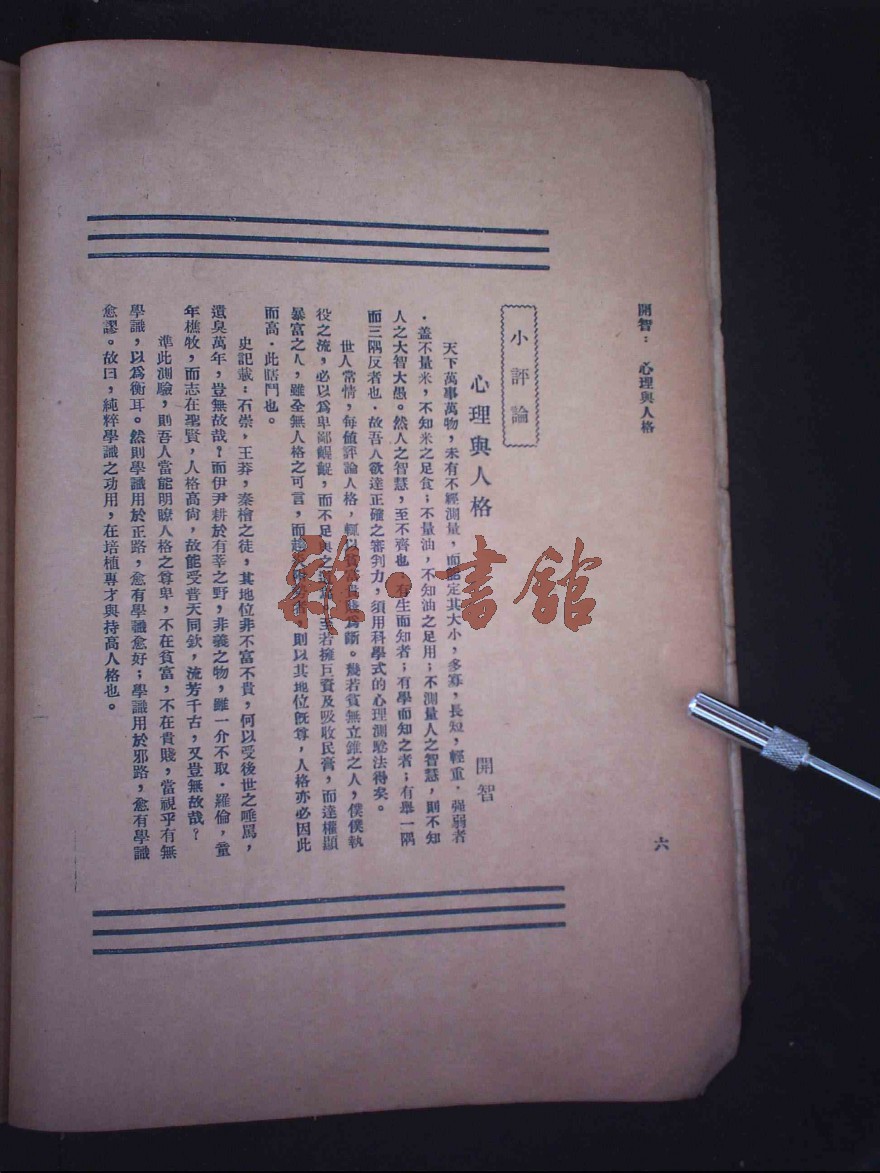 開智：　心理與人格
六
小評論
心理與人格
開智
天下萬事萬物，未有不經測量，而能定其大小，多寡，長短，輕重．強弱者
．蓋不量米，不知米之足食；不量油，不知油之足用；不測量人之智慧，則不知
人之大智大愚。然人之智慧，至不齊也　有生而知者；有學而知之者；有舉一隅
而三隅反者也．故吾人欲達正確之審判力，須用科學式的心理測驗法得矣。
世人常情，每值評論人格，輒以貧富貴賤為斷。幾若貧無立錐之人，僕僕執
役之流，必以爲卑鄙齷齪，而不足與之　　至若擁巨資及吸收民膏，而達權顯
暴富之人，雖全無人格之可言，而趨　　者，則以其地位旣尊，人格亦必因此
而高．此瞎鬥也。
史記載：石崇，王莽，秦檜之徒，其地位非不富不貴，何以受後世之唾罵，
遺臭萬年，豈無故哉？而伊尹耕於有莘之野，非義之物，雖一介不取．羅倫，童
年樵牧，而志在聖賢，人格高尙，故能受普天同欽，流芳千古，又豈無故哉？
準此測驗，則吾人當能明瞭人格之尊卑，不在貧富，不在貴賤，當視乎有無
學識，以爲衡耳。然則學識用於正路，愈有學識愈好；學識用於邪路，愈有學識
愈謬。故曰，純粹學識之功用，在培植專才與持高人格也。
雜·書館